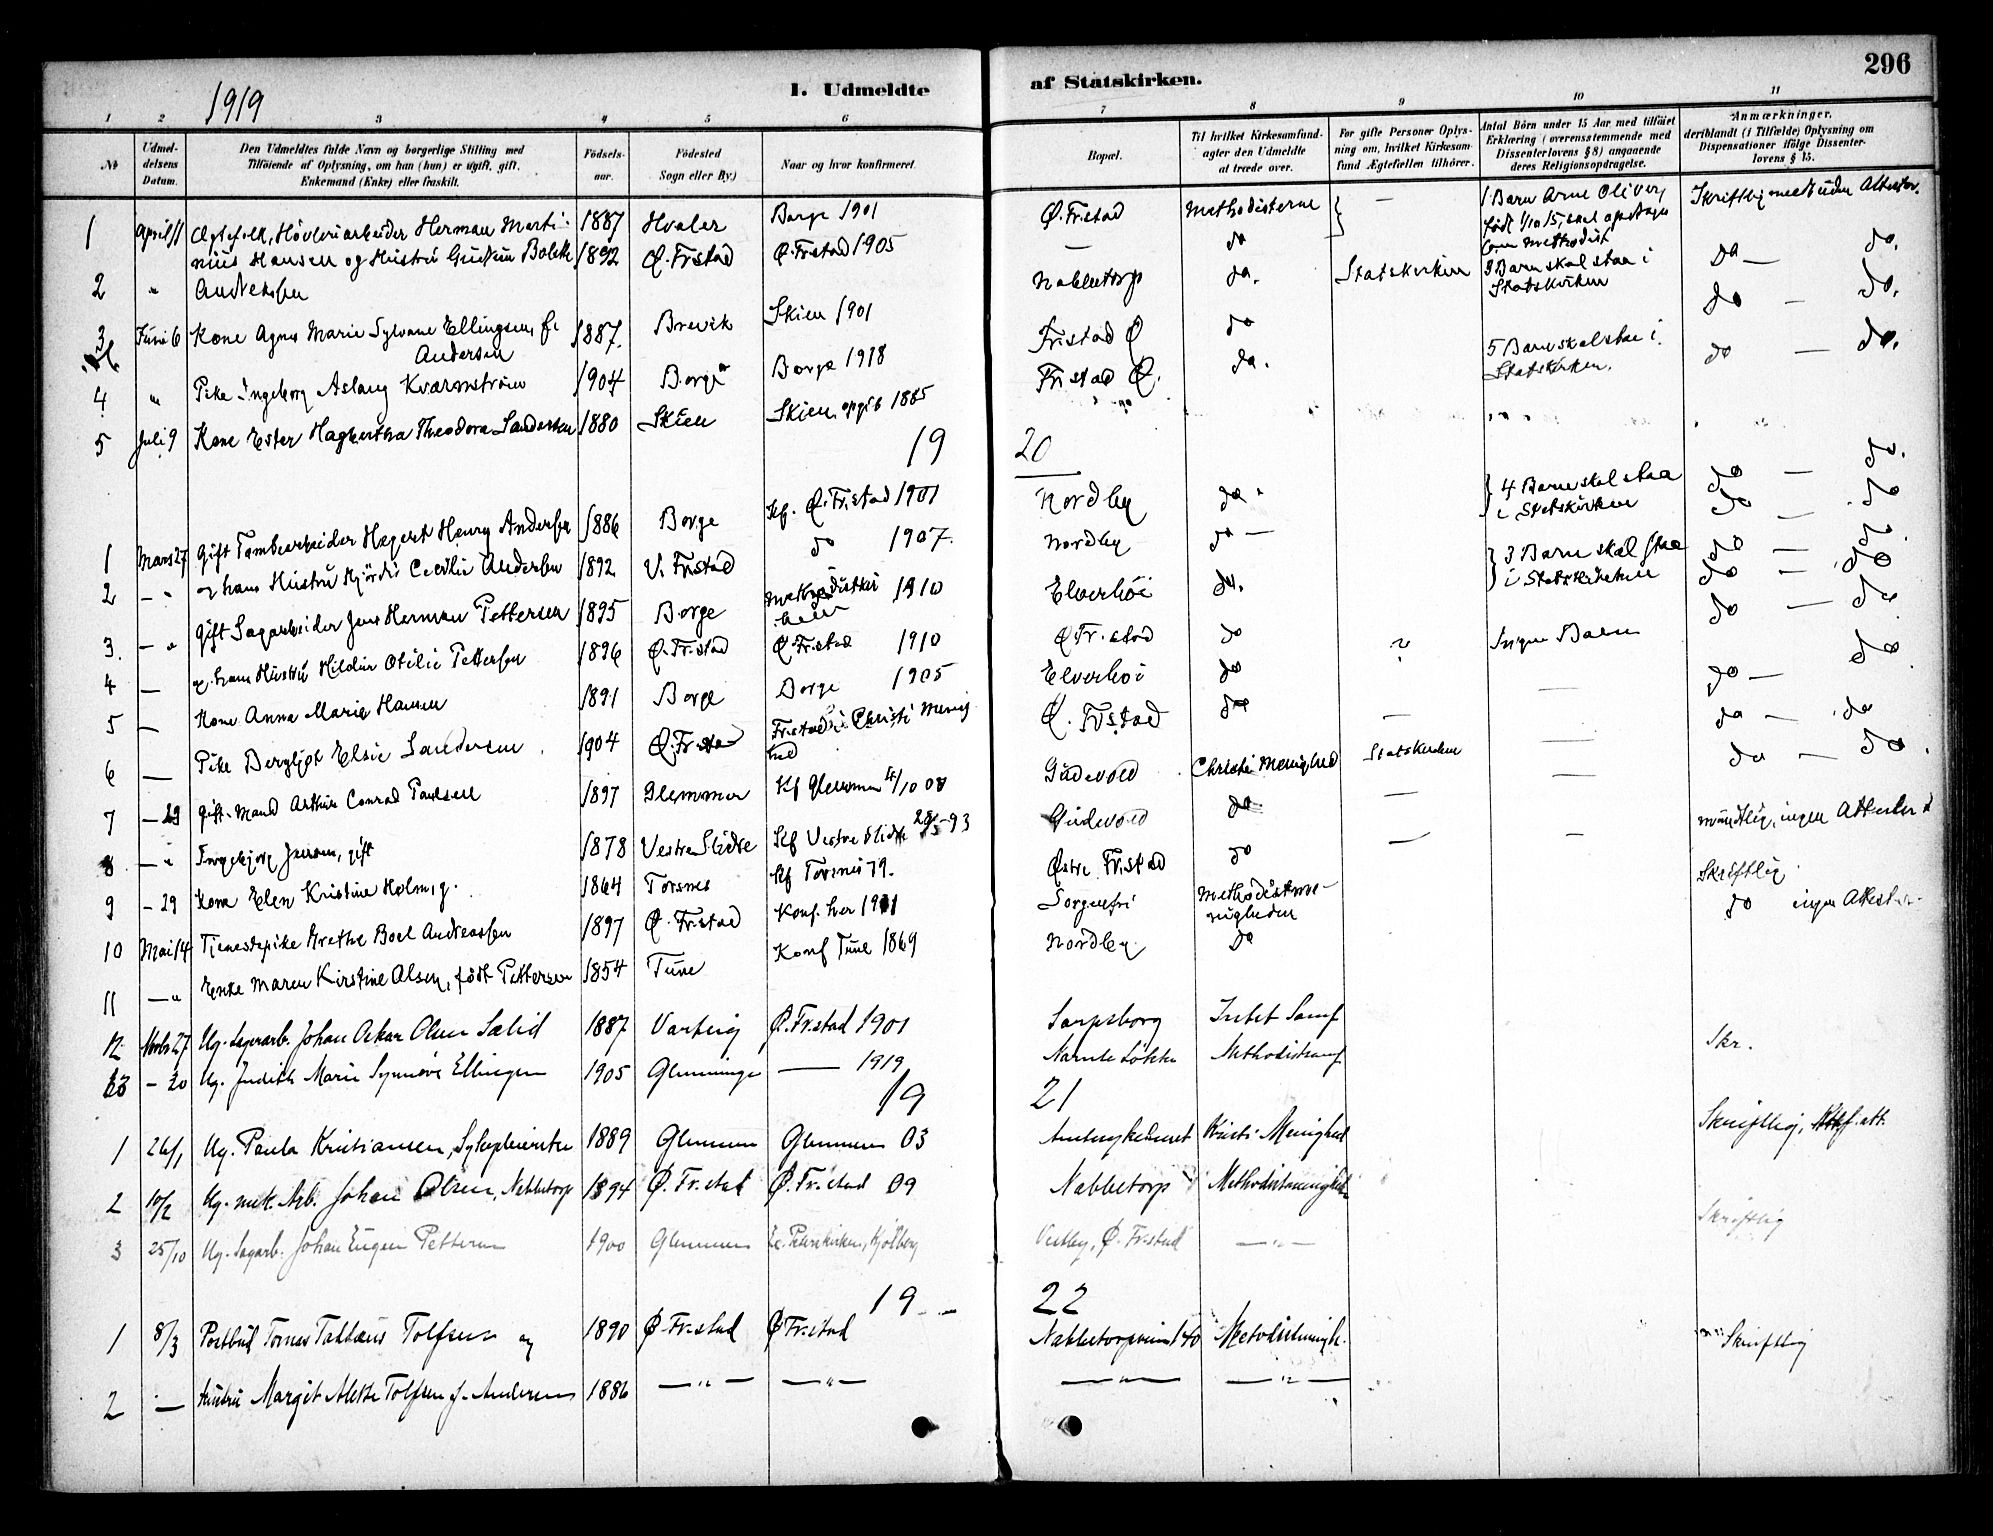 296
1919
I. Udmeldte af Statskirken.
1 2 3 4 5 6 7 8 9 10 11
№
Udmel-
delsens
Datum.
Den Udmeldtes fulde Navn og borgerlige Stilling med
Tilføiende af Oplysning, om han (hun) er ugift, gift,
Enkemand (Enke) eller fraskilt.
Fødsels-
aar.
Fødested
Sogn eller By.)
Naar og hvor konfirmeret.
Bopæl.
Til hvilket Kirkesamfund
agter den Udmeldte
at træde over.
For gifte Personer Oplys-
ning om, hvilket Kirkesam-
fund Ægtefællen tilhører.
Antal Børn under 15 Aar med tilføiet
Erklæring (overensstemmende med
Dissenterlovens § 8) angaaende
deres Religionsopdragelse.
Anmærkninger,
deriblandt (i Tilfælde) Oplysning om
Dispensationer ifølge Dissenter-
lovens § 15.
1 April 11 Ægtefolk, Høvleriarbeider Herman Marti- 1887 Hvaler Borge 1901 Ø. Fr.stad Methodisterne — 1 Barn Arne Oliver, Skriftlig med uden Attester.
født 1/10 15, skal opdrages
som Methodist
2 " nius Hansen og Hustru Gudrun Bolette 1892 Ø. Fr.stad Ø. Fr.stad 1905 — do
Andreassen
3 Juni 6 Kone Agnes Marie Sylvane Ellingsen, f. 1887. Brevik Skien 1901 Nabbetorp do. Statskirken 3 Barn skal staa i do — do.
Andersen Statskirken
4 " Pike Ingeborg Aslaug Kværnstrøm 1904 Borge Borge 1918 Fr.stad Ø do do — do.
5 Juli 9 Kone Ester Hagbertha Theodora Sandersen 1880 Skien Skien, opgib 1885 Fr.stad Ø. do. 5 Barn skal staa i do — do.
Statskirken.
19 20
1 Mars 27 Gift Tomtearbeider Hagert Henry Andersen 1886 Borge Kf. Ø. Fr.stad 1901 Nordby do. 4 Barn skal staa do — do.
i Statskirken
2 — " og hans Hustru Hjørdis Cecilie Andersen 1892 V. Fr.stad do 1907. Nordby do — do — do
3. — " Gift Sagarbeider Jens Herman Pettersen 1895 Borge Methodistki 1910 Elverhöi do. 3 Barn skal staa do — do
i Statskirken
4 — og hans Hustru Hildur Otilie Pettersen 1896 Ø. Fr.stad Ø Fr.stad 1910 Ø Fr.stad do do — do
5 — Kone Anna Marie Hansen 1891 Borge Borge 1905 Elverhöi do ? Ingen Barn do — do
6 — Pike Bergljot Elsie Sandersen 1904 Ø. Fr.stad Fr.stad i Christi Menig Ø. Fr.stad do — do — do
hed
7 — 29 Gift Mand Arthur Conrad Paulsen 1897 Glemmen Kf Glemmen 4/10 08 Gudevold Christi Menighed Statskirken — do — do
8 — " Ingebjørg Jensen, gift 1878 Vestre Slidre Kf Vestre Slidre 28/5-93 Gudevold do — — do — do.
9 — 29 Kone Elen Kristine Holm, g. 1864 Torsnes Kf Torsnes 79. Østre Fr.stad do — — mündtlig, ingen Attester
10 Mai 14 Tjenestepike Grethe Boel Andreassen 1897 Ø. Fr.stad Konf. her 1911 Sorgenfri Methodistme- Skriftlig
nigheden
11 — " Enke Maren Kirstine Olsen, født Pettersen 1854 Tune Konf Tune 1869 Nordby do do ingen Attester
12 Novbr 27 Ug. Sagarb. Johan Oskar Olsen Sælid 1887 Varteig Ø. Fr.stad 1901 Sarpsborg Intet Samf
13 — 20 Ug. Judith Marie Synnøve Ellingsen 1905 Glemminge — 1919 Narnte Løkke Methodistsamf Skr.
19 21
1 26/1 Ug. Paula Kristiansen, Sykepleierske 1889 Glemmen Glemmen 03 Kristi Menighed Skriftlig, att.
2 10/2 Ug. mek. Arb. Johan Olsen, Nabbetorp 1894 Ø. Fr.stad Ø. Fr.stad 09 Nabbetorp Methodistmenighet
3 25/10 Ug. Sagarb. Johan Eugen Pettersen 1900 Glemmen Kjølberg Vestby, Ø. Fr.stad — " — Skriftlig
19 22
1 8/3 Postbud Tolfsen og 1890 Ø Fr.stad Ø Fr.stad Nabbetorpveien 140 Metodistmenigh. Skriftlig
2 — hustru Margit Alette Tolfsen f. Andersen 1886 — " — — " — — " — — " —